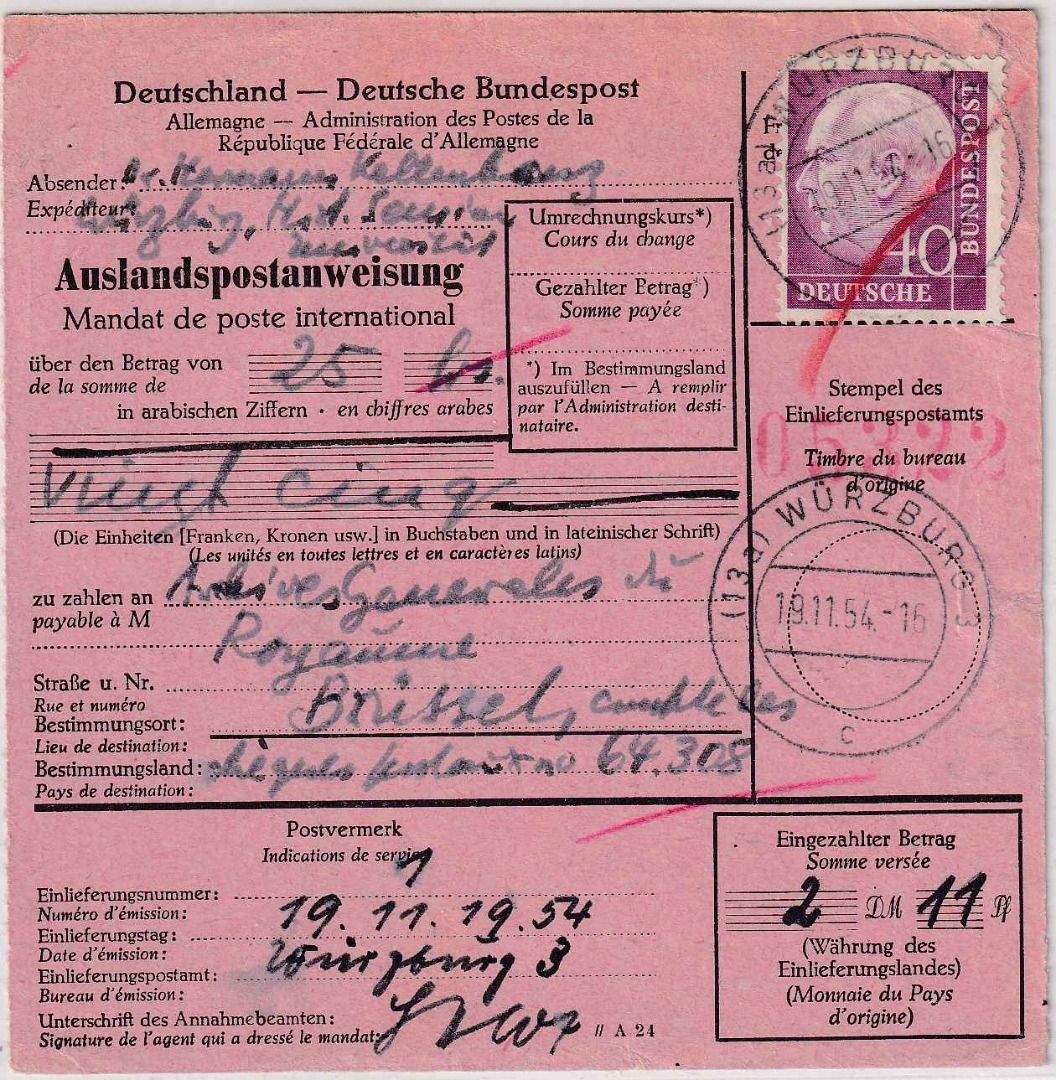 Deutschland — Deutsche Bundespost
Allemagne — Administration des Postes de la
République Fédérale d'Allemagne
Absender: Dr. Hermann
Expéditeur: Würzburg, Hist. Seminar
Universität
Auslandspostanweisung
Mandat de poste international
über den Betrag von
de la somme de
25 frs.
in arabischen Ziffern · en chiffres arabes
Umrechnungskurs*)
Cours du change
Gezahlter Betrag*)
Somme payée
*) Im Bestimmungsland
auszufüllen — A remplir
par l'Administration desti-
nataire.
(13a) WÜRZBURG
19.11.54.-16
40
BUNDESPOST
DEUTSCHE
Stempel des
Einlieferungspostamts
05322
Timbre du bureau
d'origine
vingt cinq
(Die Einheiten [Franken, Kronen usw.] in Buchstaben und in lateinischer Schrift)
(Les unités en toutes lettres et en caractères latins)
zu zahlen an Archives Generales du
payable à M
Royaume
Straße u. Nr.
Rue et numéro
Bestimmungsort: Brüssel, compte des
Lieu de destination:
Bestimmungsland: chèques postaux no 64.308
Pays de destination:
(13a) WÜRZBURG 3
19.11.54.-16
c
Postvermerk
Indications de service
Einlieferungsnummer: 1
Numéro d'émission:
Einlieferungstag: 19. 11. 1954
Date d'émission:
Einlieferungspostamt: Würzburg 3
Bureau d'émission:
Unterschrift des Annahmebeamten:
Signature de l'agent qui a dressé le mandat:
// A 24
Eingezahlter Betrag
Somme versée
2 DM 11 Pf
(Währung des
Einlieferungslandes)
(Monnaie du Pays
d'origine)